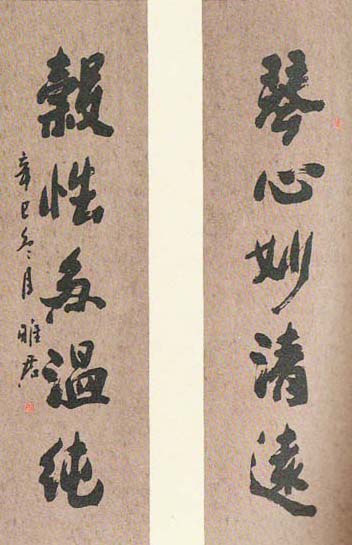 琴心妙清遠
穀性多溫純
辛巳冬月 雎君